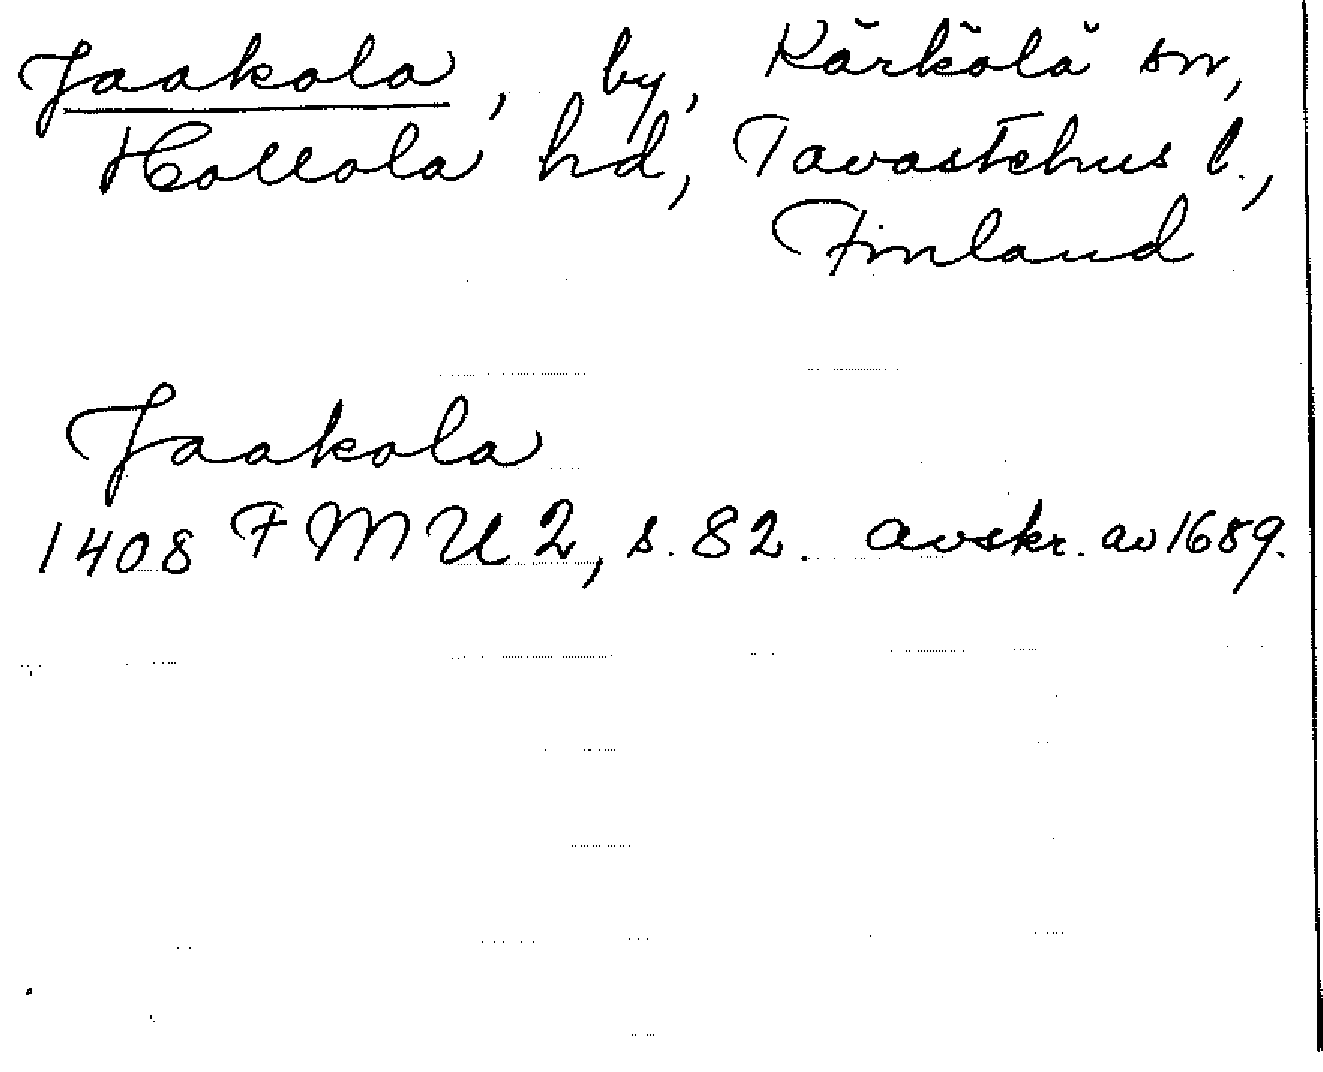 Jaakola, by, Kärkölä sn,
Hollola hd, Tavastehus l.,
Finland
Jaakola
1408 FMU 2, s. 82. avskr. av 1689.